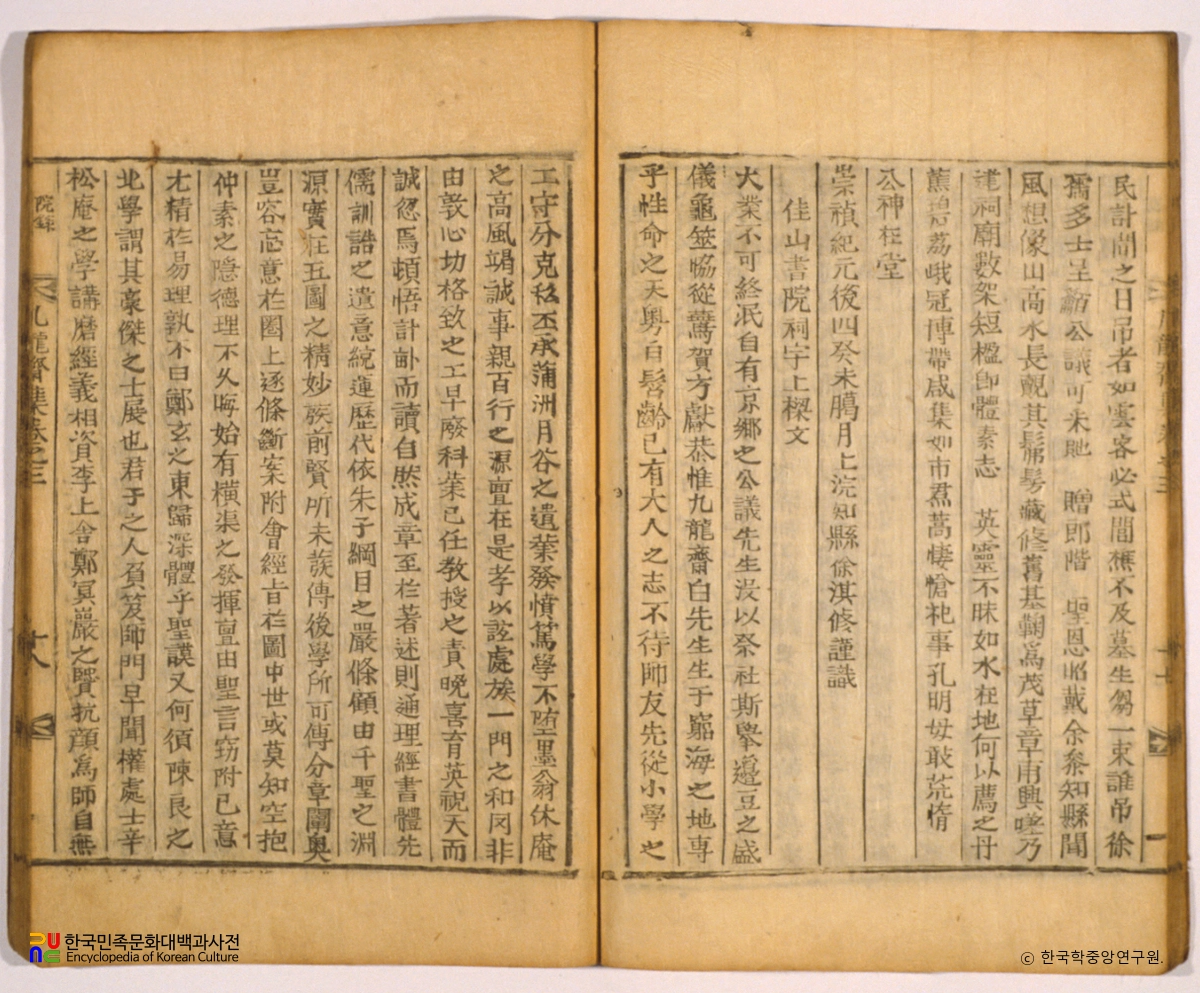 民計聞之日吊者如雲客必式閭樵不及墓生芻一束誰吊徐
孺多士呈籲公議可采貤 贈郎階 聖恩昭戴余忝知縣聞
風想像山高水長觀其鬀髣藏修舊基鞠爲茂草章甫興嗟乃
建祠廟數架短楹卽體素志 英靈不昧如水在地何以薦之丹
蕉碧荔峨冠博帶咸集如市焄蒿悽愴祀事孔明毋敢荒惰
公神在堂
崇禎紀元後四癸未臈月上浣知縣徐淇修謹識
佳山書院祠宇上樑文
大業不可終泯自有京鄉之公議先生沒以祭社斯擧籩豆之盛
儀龜筮恊從鷰賀方獻恭惟九龍齋白先生生于窮海之地專
乎性命之天粤自髫齡已有大人之志不待師友先從小學之
工守分克私丕承蒲洲月谷之遺業發憤篤學不墮墨翁休庵
之高風竭誠事親百行之源亶在是孝以詃處族一門之和罔非
由敦心切格致之工早廢科業已任敎授之責晩喜育英祝天而
誠忽焉頓悟計齡而讀自然成章至於著述則通理經書體先
儒訓誥之遺意統運歷代依朱子綱目之嚴條顧由千聖之淵
源實在五圖之精妙族前賢所未蔟傳後學所可傳分章闡奥
豈容忘意於圈上逐條斷案附會經旨於圖中世或莫知空抱
仲素之隱德理不久晦始有橫渠之發揮亶由聖言窃附已意
尤精於易理孰不曰鄭玄之東歸深體乎聖謨又何須陳良之
北學謂其豪傑之士展也君子之人負笈師門早聞權處士辛
松庵之學講磨經義相資李上舍鄭冥巖之賢抗顔爲師自無
院錄
九龍齋集卷之三
十七
한국민족문화대백과사전
Encyclopedia of Korean Culture
ⓒ 한국학중앙연구원.